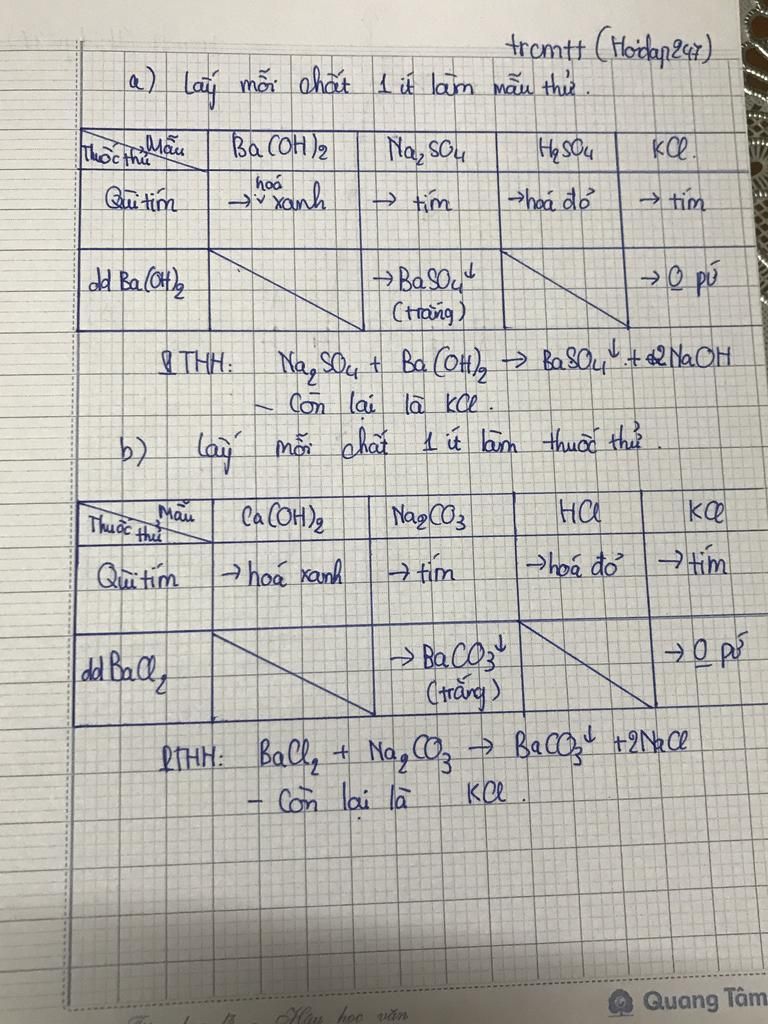 trcmtt (Hoidap247)
a) Lấy mỗi chất 1 ít làm mẫu thử.
Thuốc thử Mẫu Ba(OH)2 Na2SO4 H2SO4 KCl.
Quì tím → hoá xanh → tím → hoá đỏ → tím
dd Ba(OH)2 → BaSO4↓ (trắng) → O pứ
PTHH: Na2SO4 + Ba(OH)2 → BaSO4↓ + 2NaOH
– Còn lại là KCl.
b) Lấy mỗi chất 1 ít làm thuốc thử.
Thuốc thử Mẫu Ca(OH)2 Na2CO3 HCl KCl
Quì tím → hoá xanh → tím → hoá đỏ → tím
dd BaCl2 → BaCO3↓ (trắng) → O pứ
PTHH: BaCl2 + Na2CO3 → BaCO3↓ + 2NaCl
– Còn lại là KCl.
học văn
Quang Tâm